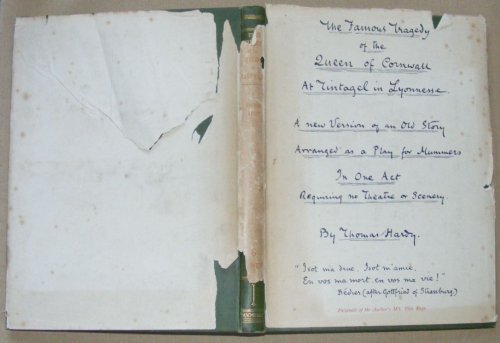 The Famous Tragedy
of the
Queen of Cornwall
At Tintagel in Lyonnesse
A new Version of an Old Story
Arranged as a Play for Mummers
In One Act
Requiring no Theatre or Scenery.
By Thomas Hardy.
"Isot ma drue, Isot m'amie,
En vos ma mort, en vos ma vie!"
Bédier (after Gottfried of Strassburg.)
Facsimile of the Author's MS. Title Page